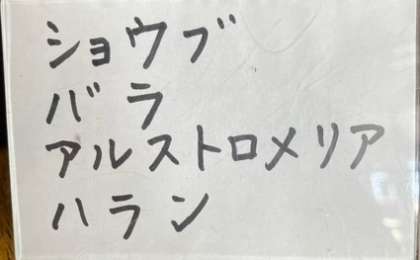 ショウブ
バラ
アルストロメリア
ハラン